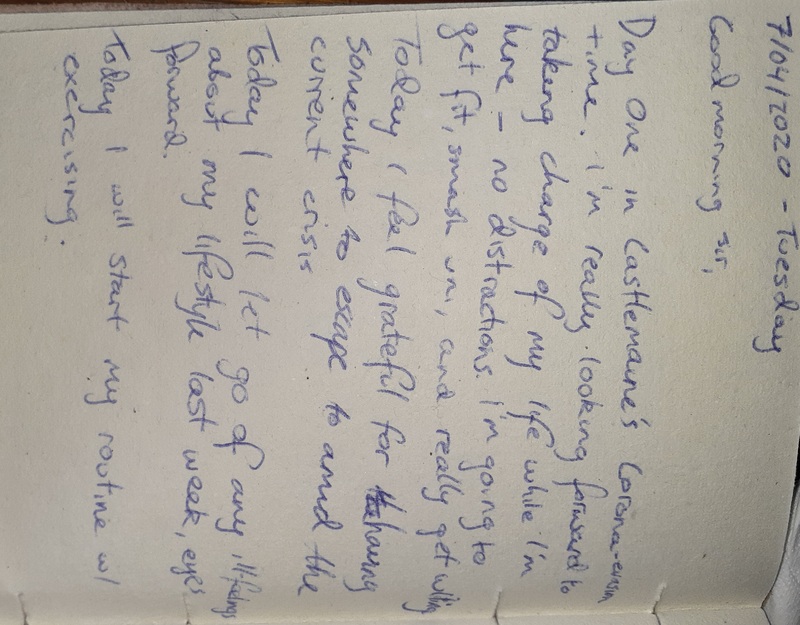 7/04/2020 - Tuesday
Good morning sir,
Day One in Castlemaine's Corona-
time. I'm really looking forward to
taking charge of my life while I'm
here - no distractions. I'm going to
get fit, smash uni, and really get
Today I feel grateful for having
somewhere to escape to amid the
current crisis
Today I will let go of any ill-feelings
about my lifestyle last week, eyes
forward.
Today I will start my routine w/
exercising.